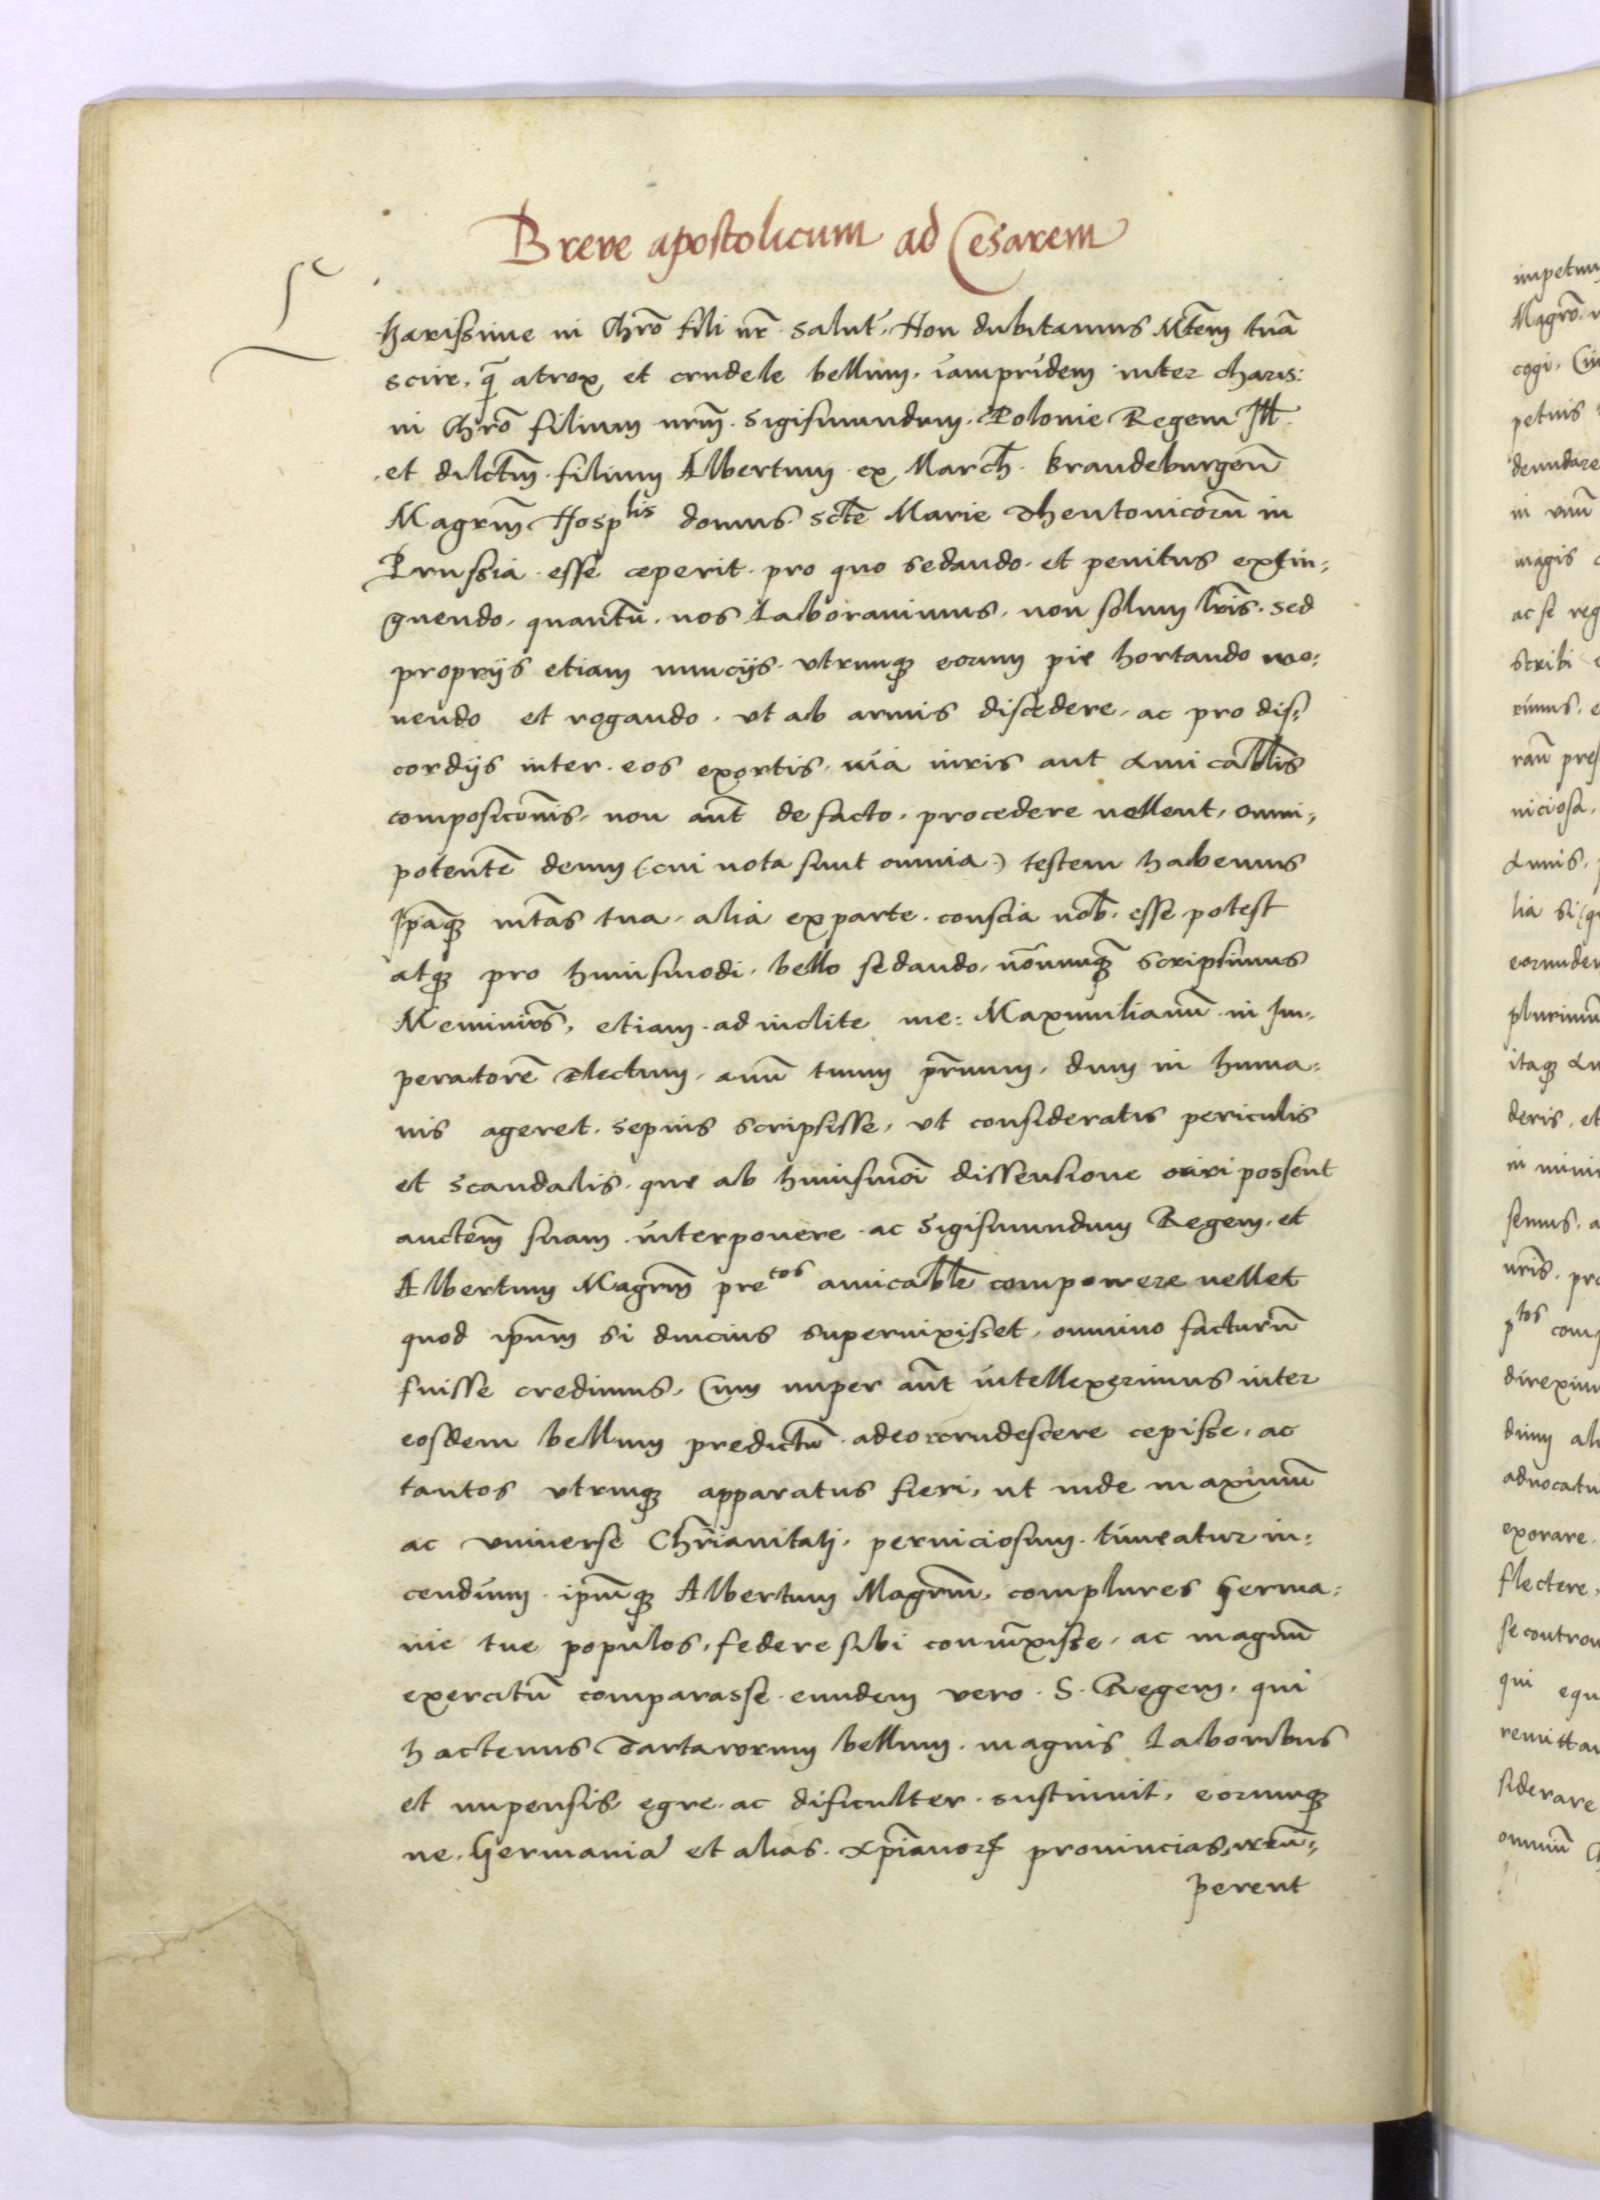 Breve apostolicum ad Cesarem
harissime in Chro fili nr̄ salut̄. Non dubitamus Mt̄em tuā
scire, q̄ atrox et crudele bellum, iampridem inter charis:
in Chrō filium nrm̄ Sigismundum Polonie Regem Ill̄.
et dilctm̄ filium Albertum ex March̄. brandeburgen̄
Magrm̄ Hosplis domus sctē Marie Theutonicorū in
Prussia esse ceperit. pro quo sedando et penitus extin:
guendo, quantū nos Laboravimus, non solum lr̄is, sed
proprijs etiam nuncijs utrumqꝫ eorum pie hortando mo:
nendo et rogando, ut ab armis discedere, ac pro dis:
cordijs inter eos exortis, via iuris aut amicablis̄
composicōnis, non aut̄ de facto, procedere vellent, omni:
potentē deum (cui nota sunt omnia) testem habemus
Ipāqꝫ mt̄as tua alia ex parte conscia nob̄ esse potest
atqꝫ pro huiusmodi bello sedando, nōnunqꝫ scripsimus
Meminim̄s, etiam ad inclite me: Maxumilianū in Im:
peratorē electum, auū tuum pr̄num, dum in huma:
nis ageret, sepius scripsisse, ut consideratis periculis
et scandalis que ab huiusmōi dissensione oriri possent
auctem̄ suam interponere ac Sigismundum Regem, et
Albertum Magrm̄ pretos amicablē componere vellet
quod ipūm si diucius supervixisset, omnino facturū
fuisse credimus, Cum nuper aut̄ intellexerimus inter
eosdem bellum predictū adeo crudescere cepisse, ac
tantos utrinqꝫ apparatus fieri, ut inde maximū
ac universe Chrianitati, perniciosum timeatur in:
cendium ipūmqꝫ Albertum Magrm̄, complures Germa:
nie tue populos, federe sibi coniūxisse, ac magnū
exercitū comparasse eundem vero S. Regem, qui
hactenus Tartarorum bellum magnis Laboribus
et impensis egre ac dificulter sustinuit, eorumqꝫ
ne Germaniā et alias xpīanorꝝ provincias, irrū:
perent
impetum
Magrō
cogi,
petuis
denudare
in unū
magis
ac se reg
scribi
rimus, e
rāū pres
niciosa,
eorundem
plurimū
itaqꝫ
deris, et
in
semus, a
nr̄is, pro
ptos com
direxim
dum ali
advocatu
exorare
flectere,
se controv
qui equ
remittan
siderare
omniū